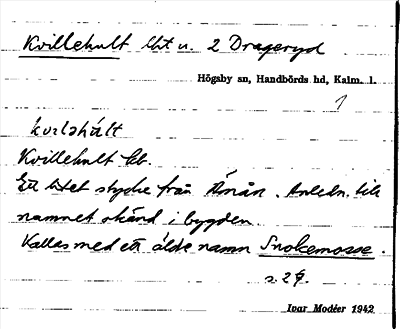 Kvillehult lht u. 2 Drageryd
Högsby sn, Handbörds hd, Kalm. l.
1
Kvillehult
Ett litet stycke från Ånån. Anledn. till
namnet okänd i bygden.
Kallas med ett äldre namn Snokemosse.
s. 29.
Ivar Modéer 1942